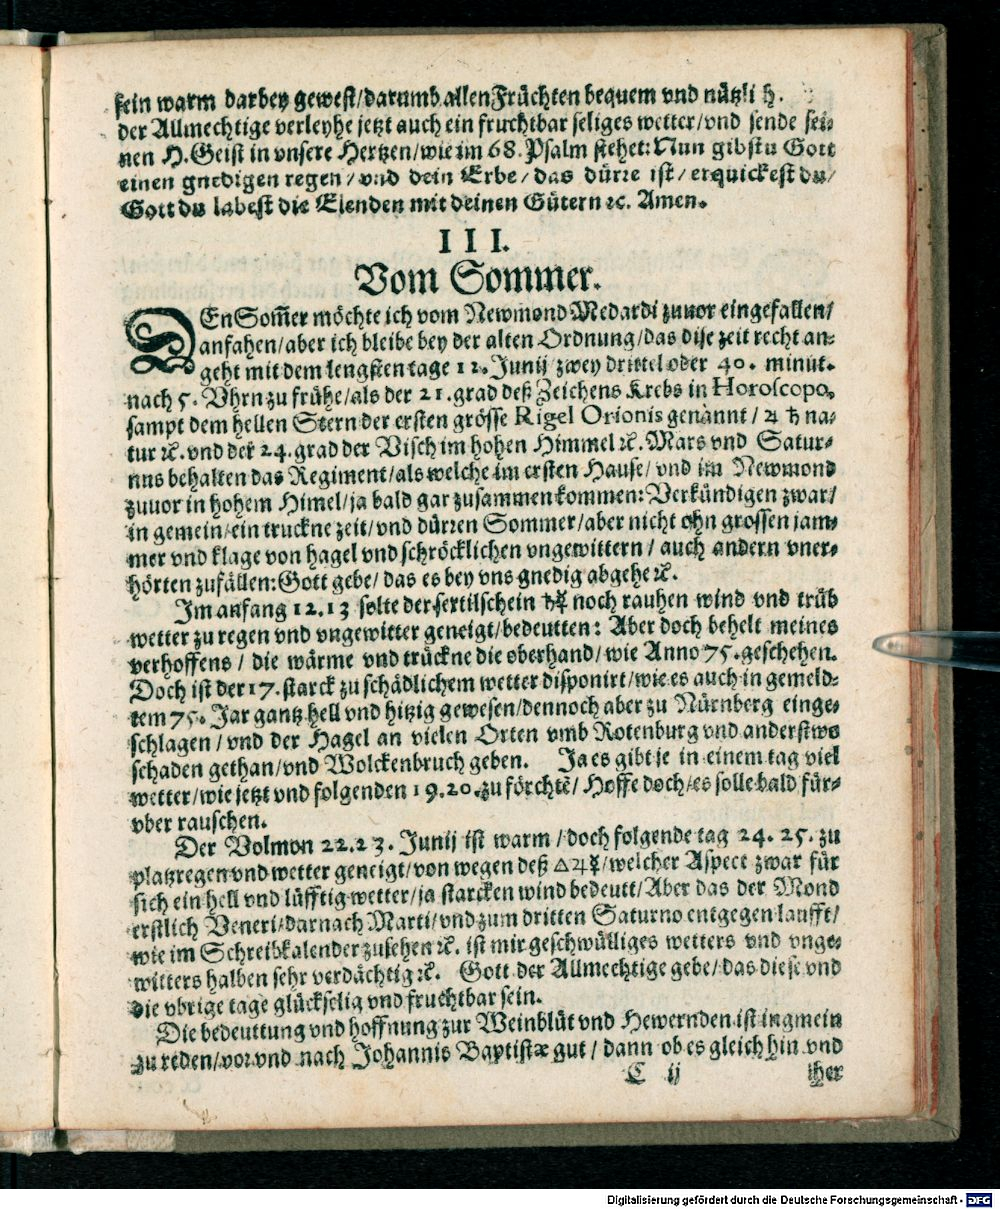 sein warm darbey gewest/darumb allen Früchten bequem vnd nützli h.
der Allmechtige verleyhe jetzt auch ein fruchtbar seliges wetter/vnd sende sei-
nen H. Geist in vnsere Hertzen/wie im 68. Psalm stehet: Nun gibstu Gott
einen gnedigen regen/vnd dein Erbe/das dürre ist/erquickest du/
Gott du labest die Elenden mit deinen Gütern ꝛc. Amen.
III.
Vom Sommer.
DEn Som̄er möchte ich vom Newmond Medardi zuuor eingefallen/
anfahen/aber ich bleibe bey der alten Ordnung/das dise zeit recht an-
geht mit dem lengsten tage 12. Junij zwey drittel oder 40. minut.
nach 5. Vhrn zu frühe/als der 21. grad deß Zeichens Krebs in Horoscopo,
sampt dem hellen Stern der ersten grösse Rigel Orionis genannt/ ♃ ♄ na-
tur ꝛc. vnd der 24. grad der Visch im hohen Himmel ꝛc. Mars vnd Satur-
nus behalten das Regiment/als welche im ersten Hause/vnd im Newmond
zuuor in hohem Himel/ja bald gar zusammen kommen: Verkündigen zwar/
in gemein/ein truckne zeit/vnd dürren Sommer/aber nicht ohn grossen jam-
mer vnd klage von hagel vnd schröcklichen vngewittern/auch andern vner-
hörten zufällen: Gott gebe/das es bey vns gnedig abgehe ꝛc.
Im anfang 12.13 solte der sextilschein ♄☿ noch rauhen wind vnd trüb
wetter zu regen vnd vngewitter geneigt/bedeutten: Aber doch behelt meines
verhoffens/die wärme vnd trückne die oberhand/wie Anno 75. geschehen.
Doch ist der 17. starck zu schädlichem wetter disponirt/wie es auch in gemeld-
tem 75. Jar gantz hell vnd hitzig gewesen/dennoch aber zu Nürnberg einge-
schlagen/vnd der Hagel an vielen Orten vmb Rotenburg vnd anderstwo
schaden gethan/vnd Wolckenbruch geben. Ja es gibt je in einem tag viel
wetter/wie jetzt vnd folgenden 19.20. zu förchtē/Hoffe doch/es solle bald für-
vber rauschen.
Der Volmon 22.23. Junij ist warm/doch folgende tag 24. 25. zu
platzregen vnd wetter geneigt/von wegen deß △♃☿/welcher Aspect zwar für
sich ein hell vnd lüfftig wetter/ja starcken wind bedeutt/Aber das der Mond
erstlich Veneri/darnach Marti/vnd zum dritten Saturno entgegen laufft/
wie im Schreibkalender zusehen ꝛc. ist mir geschwülliges wetters vnd vnge-
witters halben sehr verdächtig ꝛc. Gott der Allmechtige gebe/das diese vnd
die vbrige tage glückselig vnd fruchtbar sein.
Die bedeuttung vnd hoffnung zur Weinblüt vnd Hewernden ist ingmein
zu reden/vor vnd nach Johannis Baptistæ gut/dann ob es gleich hin vnd
C ij iher
Digitalisierung gefördert durch die Deutsche Forschungsgemeinschaft - DFG